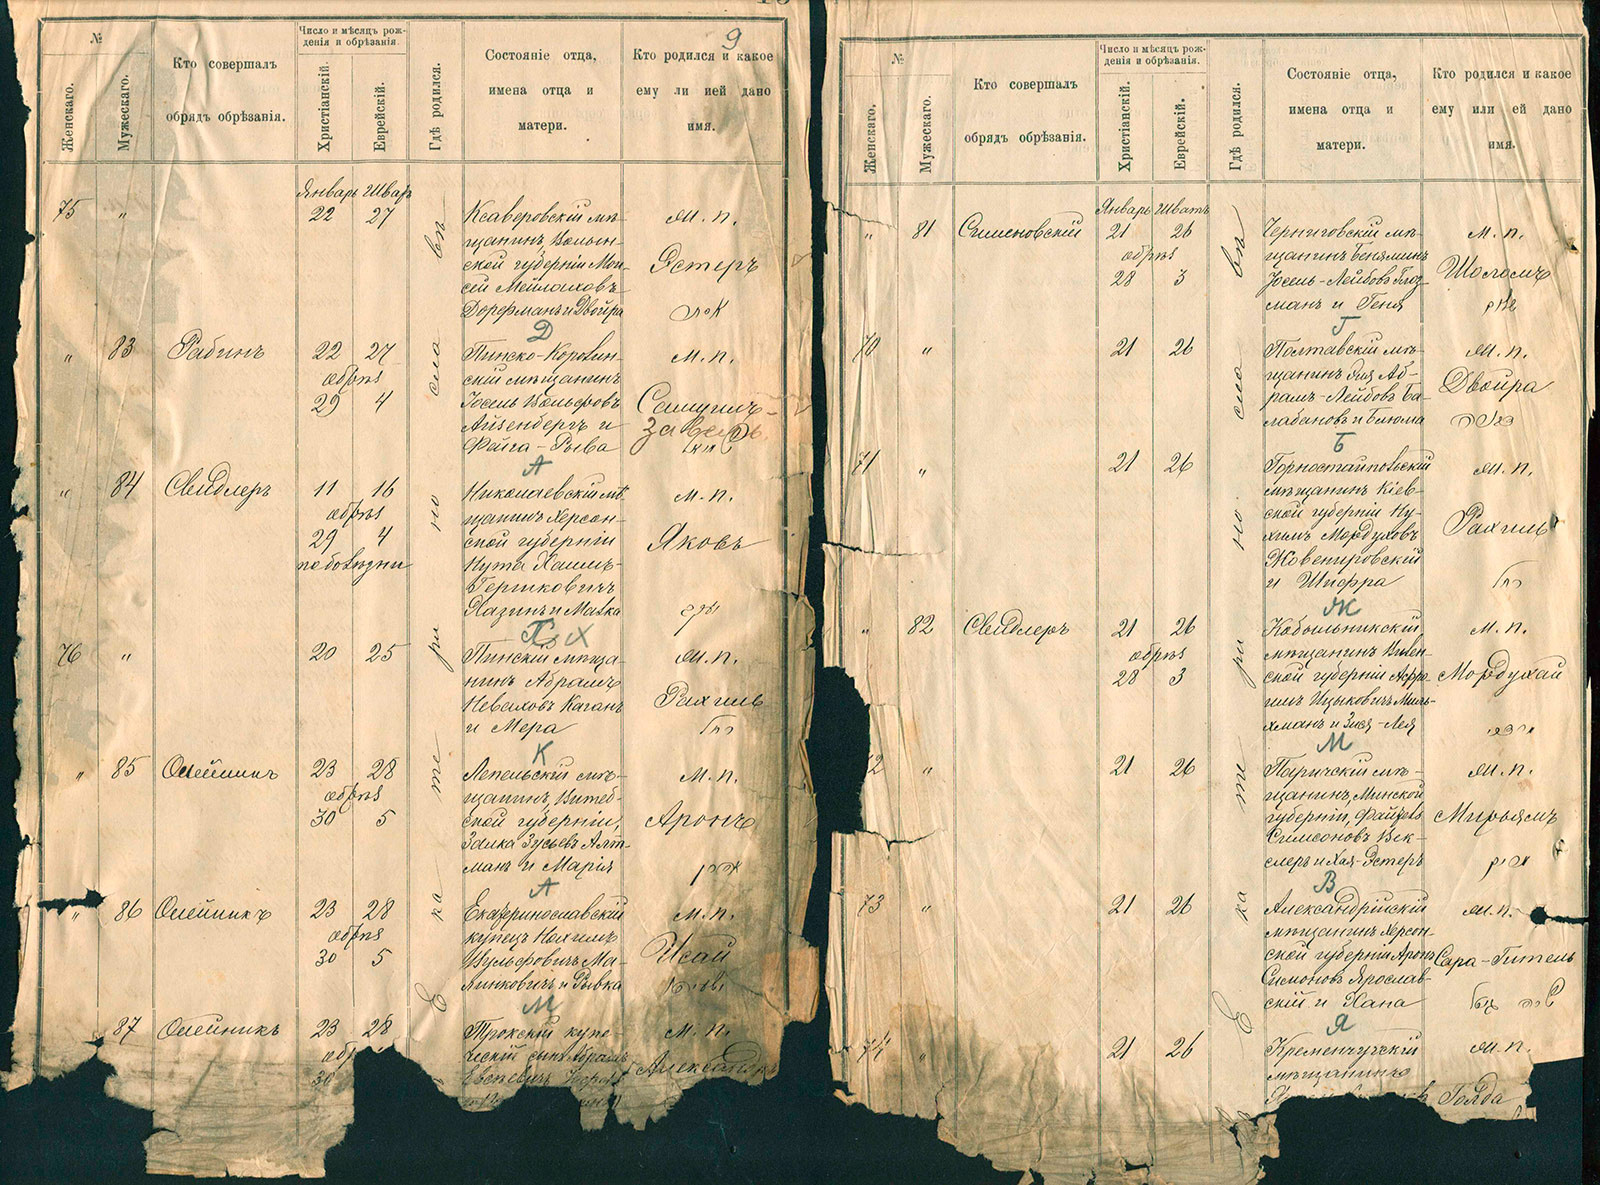 9
№
Женскаго.
Мужескаго.
Кто совершалъ
обрядъ обрѣзанія.
Число и мѣсяцъ рож-
денія и обрѣзанія.
Христіанскій.
Еврейскій.
Гдѣ родился.
Состояніе отца,
имена отца и
матери.
Кто родился и какое
ему ли ией дано
имя.
Январь Шватъ
75 " 22 27
Ксаверовскій мѣ-
щанинъ Волын-
ской губерніи Мои-
сей Мейлаховъ
Дорфманъ и Двойра
м. п.
Эстеръ
Д
" 83 Рабинъ 22 27
обрѣз
29 4
скій мѣщанинъ
Іосель Вольфовъ
Айзенбергъ и
Фейга-Рыва
м. п.
Самуилъ-
Завель
А
" 84 Свидлеръ 11 16
обрѣз
29 4
по болѣзни
Николаевскій мѣ-
щанинъ Херсон-
ской губерніи
Нута Хаимъ-
Гершковичъ
Хазинъ и Матка
м. п.
Яковъ
Х
76 " 20 25
Пинскій мѣща-
нинъ Абрамъ
Каганъ
и Мера
м. п.
Рахиль
רחל
К
" 85 Олейникъ 23 28
обрѣз
30 5
Лепельскій мѣ-
щанинъ, Витеб-
ской губерніи,
Залка Зусьевъ Алт-
манъ и Марія
м. п.
Аронъ
אהרן
А
" 86 Олейникъ 23 28
обрѣз
30 5
Екатеринославскій
купецъ Нохимъ
Вульфовичъ Ма-
линковичъ и Рывка
м. п.
Исай
М
87 Олейникъ 23 28
обр
30
Трокскій купе-
ческій сынъ Абрамъ
м. п.
Александръ
въ
сла
но
ри
те
ка
Е
№
Женскаго.
Мужескаго.
Кто совершалъ
обрядъ обрѣзанія.
Число и мѣсяцъ рож-
денія и обрѣзанія.
Христіанскій.
Еврейскій.
Гдѣ родился.
Состояніе отца,
имена отца и
матери.
Кто родился и какое
ему или ей дано
имя.
Январь Шватъ
" 81 Симоновскій 21 26
обрѣз
28 3
Черниговскій мѣ-
щанинъ Беняминъ
Іосель-Лейбовъ Глоз-
манъ и Геня
м. п.
Шоломъ
Г
70 " 21 26
Полтавскій мѣ-
щанинъ Аб-
рамъ-Лейбовъ Ба-
лабановъ и Блюма
м. п.
Двойра
דבורה
Б
71 " 21 26
Горностайпольскій
мѣщанинъ Кіев-
ской губерніи Ну-
химъ Мордуховъ
Жовенировскій
и Шифра
м. п.
Рахиль
רחל
Ж
" 82 Свидлеръ 21 26
обрѣз
28 3
Кобыльникскій
мѣщанинъ Вилен-
ской губерніи Афро-
имъ Ицыковичъ Миль-
хманъ и Зися-Лея
м. п.
Мордухай
מרדכי
М
2 " 21 26
Паричскій мѣ-
щанинъ, Минской
губерніи, Файвель
Симсоновъ Век-
слеръ и Хая-Эстеръ
м. п.
Мирьямъ
מרים
В
73 " 21 26
Александрійскій
мѣщанинъ Херсон-
ской губерніи Аронъ
Симоновъ Ярослав-
скій и Хана
м. п.
Сара-Гитель
שרה גיטל
Я
74 " 21 26
Кременчугскій
мѣщанинъ
м. п.
Голда
въ
сла
но
ри
те
ка
Е